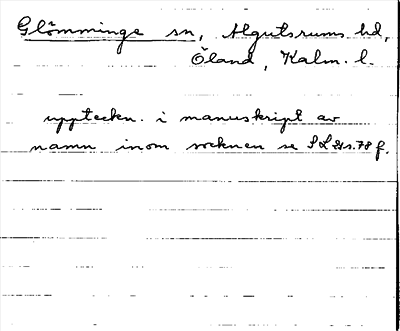 Glömminge sn, Algutsrums hd,
Öland, Kalm. l.
uppteckn. i manuskript av
namn inom socknen se SL 21 s. 78 f.